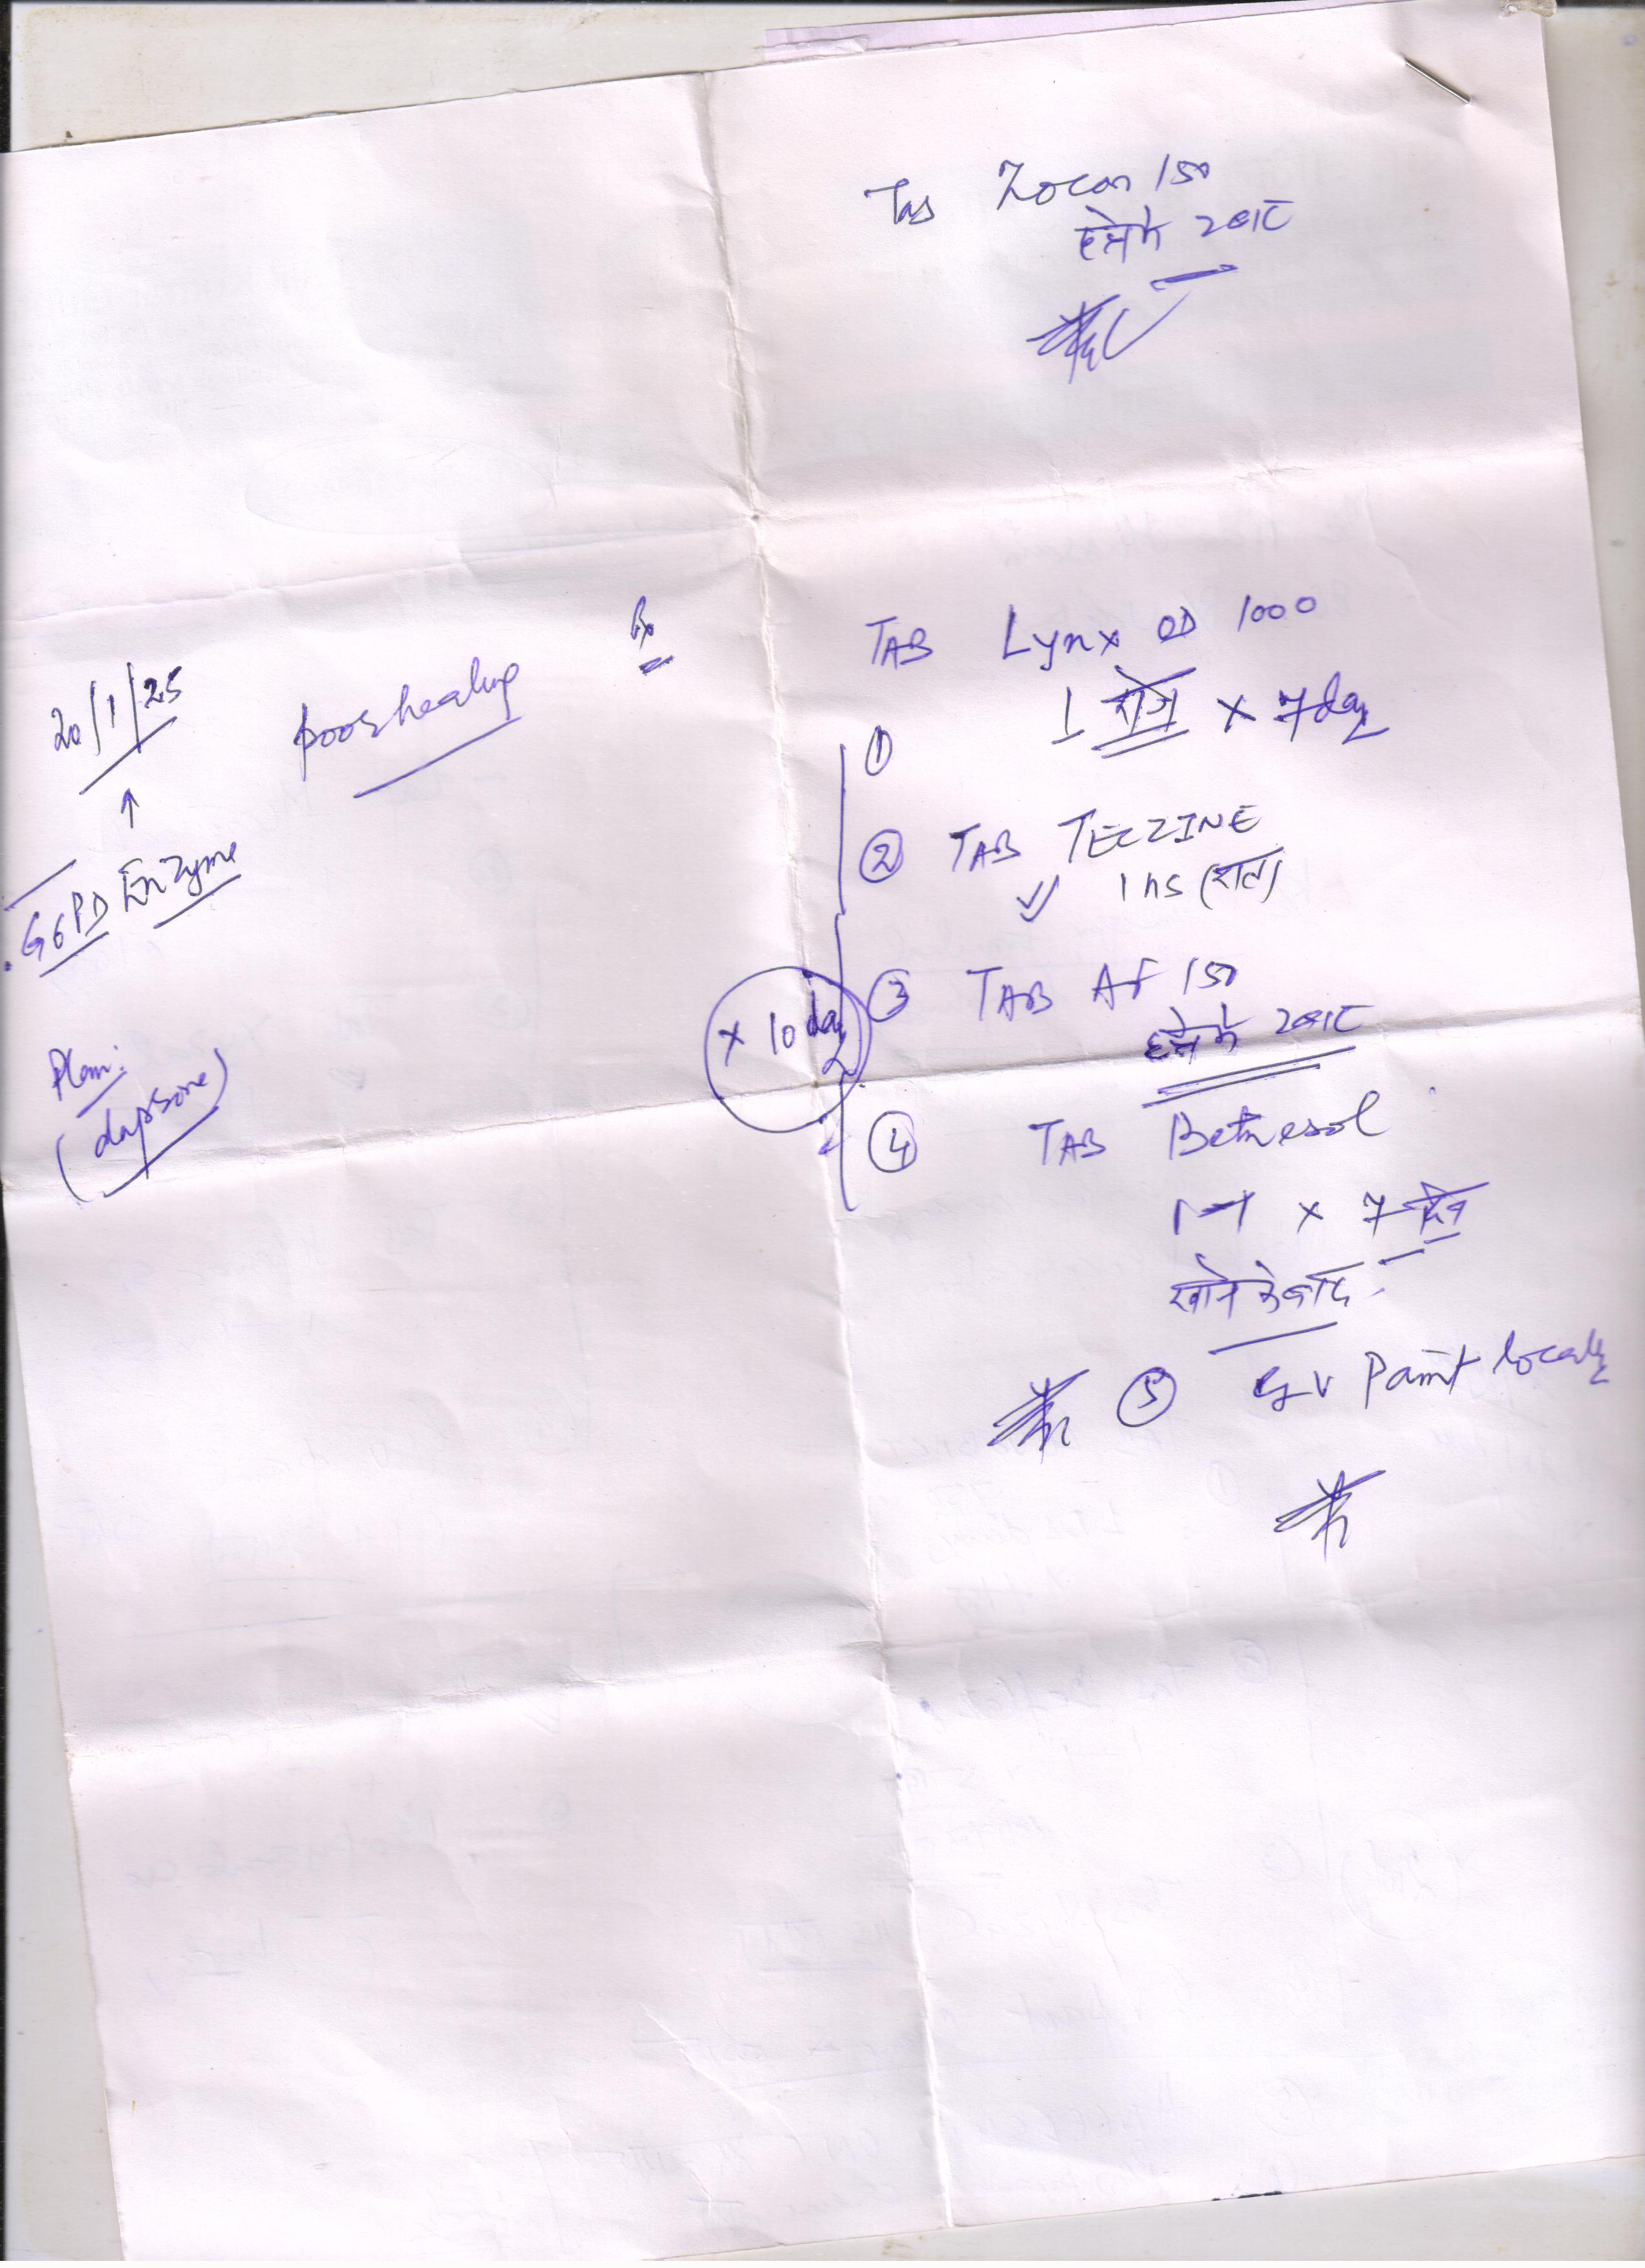 Tab Zocon 150
हफ्ते में 2 बार
20/1/25
poor healing
Rx
G6PD Enzyme
Plan:
(dapsone)
TAB Lynx OD 1000
①
1 रोज x 7 day
② TAB TECZINE
1 hs (रात)
x 10 day
③ TAB AF 150
हफ्ते में 2 बार
④ TAB Betnesol
1-1 x 7 दिन
खाने के बाद
⑤ GV Paint locally